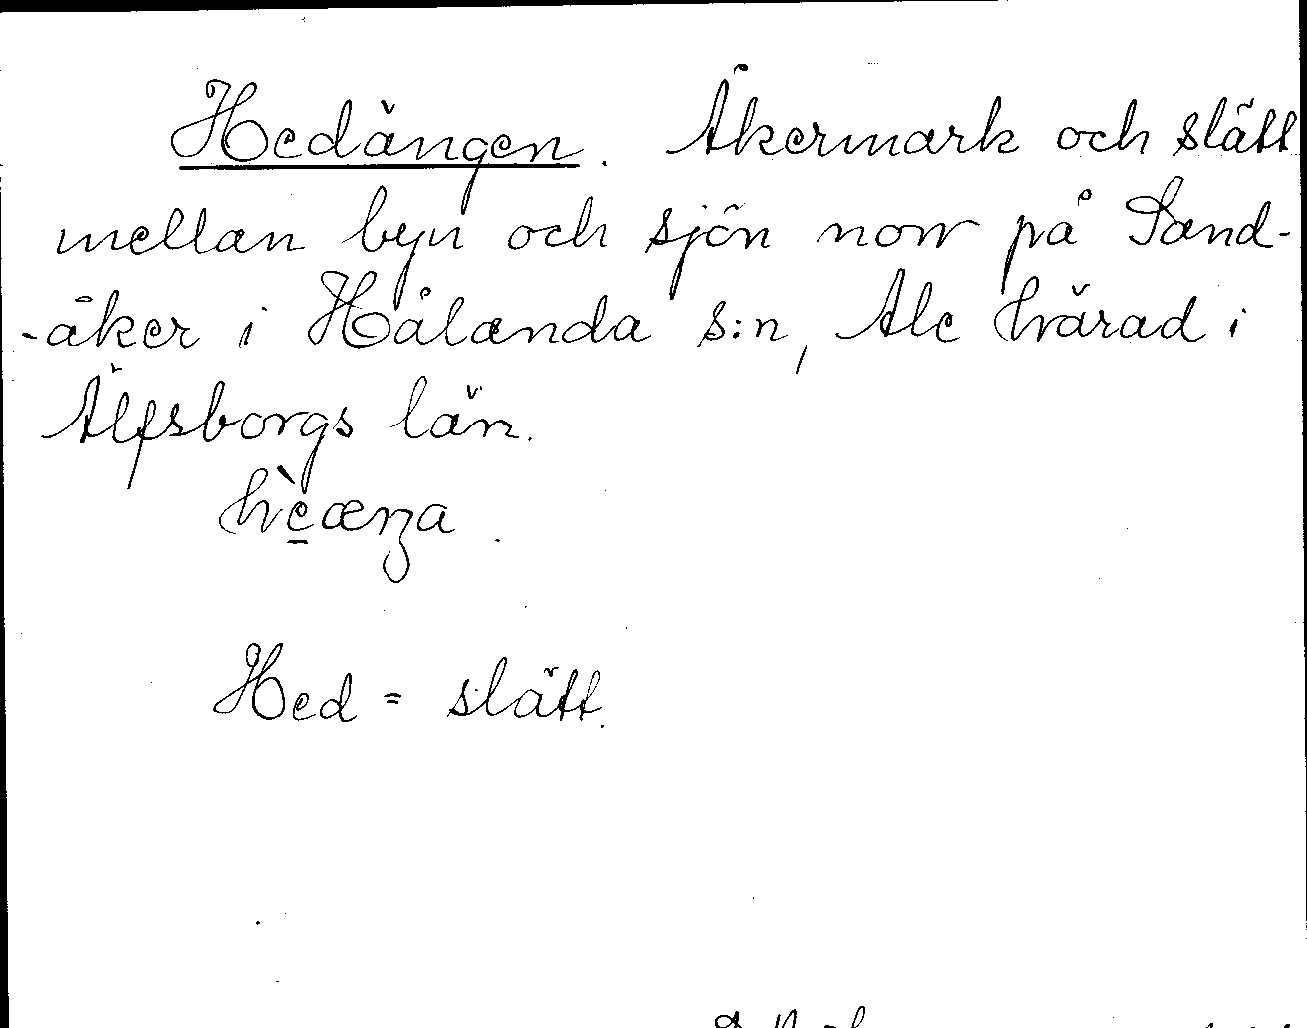 Hedängen. Åkermark och slätt
mellan byn och sjön norr på Sand-
-åker i Hålanda s:n, Ale härad i
Älfsborgs län.
hèæŋa.
Hed = slätt.